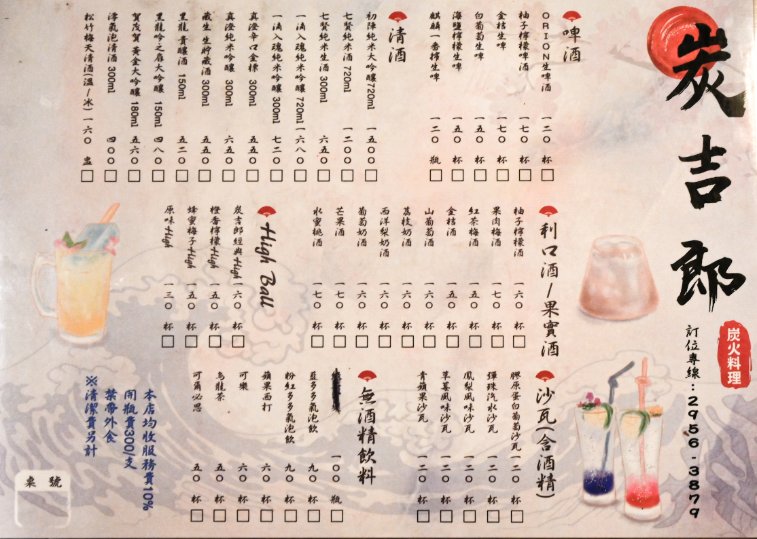 炭吉郎
炭火料理
訂位專線：2956-3879
啤酒
ORION生啤酒 一二〇 杯
柚子檸檬啤酒 一七〇 杯
金桔生啤 一七〇 杯
白葡萄生啤 一五〇 杯
海鹽檸檬生啤 一五〇 杯
麒麟一番搾生啤 一二〇 瓶
清酒
初陣純米大吟釀720ml 一五〇〇
七賢純米酒 720ml 一二〇〇
七賢純米生酒 300ml 六五〇
一滴入魂純米吟釀 720ml 一六八〇
一滴入魂純米吟釀 300ml 七二〇
真澄辛口金標 300ml 五五〇
真澄純米吟釀 300ml 六五〇
藏生生貯藏酒 300ml 五五〇
黑龍貴釀酒 150ml 五二〇
黑龍吟之雫大吟釀 150ml 四八〇
賀茂賀黃金大吟釀 180ml 六五〇
澪氣泡清酒 300ml 四〇〇
松竹梅天清酒(溫/冰) 一六〇 盅
利口酒/果實酒
柚子檸檬酒 一六〇 杯
果肉梅酒 一七〇 杯
紅茶梅酒 一五〇 杯
金桔酒 一五〇 杯
山葡萄酒 一六〇 杯
荔枝奶酒 一六〇 杯
西洋梨奶酒 一六〇 杯
葡萄奶酒 一六〇 杯
芒果酒 一七〇 杯
水蜜桃酒 一七〇 杯
High Ball
炭吉郎經典High 一六〇 杯
橙香檸檬High 一五〇 杯
蜂蜜梅子High 一五〇 杯
原味High 一三〇 杯
沙瓦(含酒精)
膠原蛋白葡萄沙瓦 一二〇 杯
彈珠汽水沙瓦 一二〇 杯
鳳梨風味沙瓦 一二〇 杯
草莓風味沙瓦 一二〇 杯
青蘋果沙瓦 一二〇 杯
無酒精飲料
一〇〇 瓶
荔多多氣泡飲 九〇 杯
粉紅多多氣泡飲 九〇 杯
蘋果西打 六〇 杯
可樂 六〇 杯
烏龍茶 五〇 杯
可爾必思 五〇 杯
本店均收服務費10%
開瓶費300/支
禁帶外食
※清潔費另計
桌號